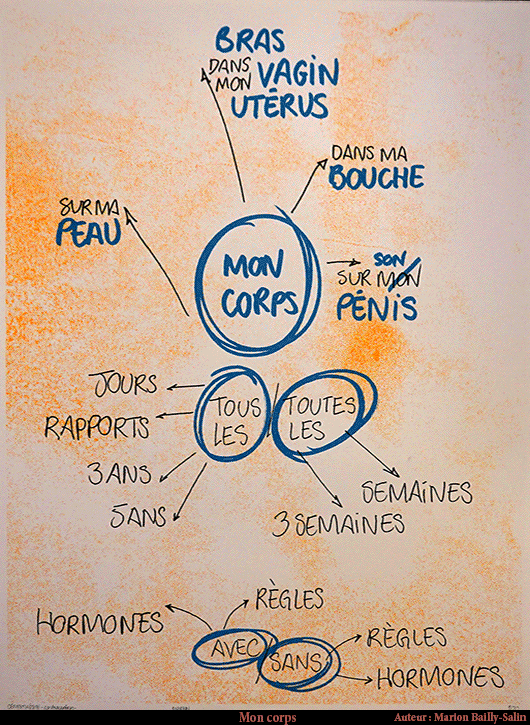 BRAS
DANS MON VAGIN
UTÉRUS
DANS MA
BOUCHE
SUR MA
PEAU
MON
CORPS
SON
SUR MON
PÉNIS
JOURS
RAPPORTS
3 ANS
5 ANS
TOUS / TOUTES
LES LES
SEMAINES
3 SEMAINES
HORMONES
RÈGLES
AVEC / SANS
RÈGLES
HORMONES
Mon corps
Auteur : Marion Bailly-Salin